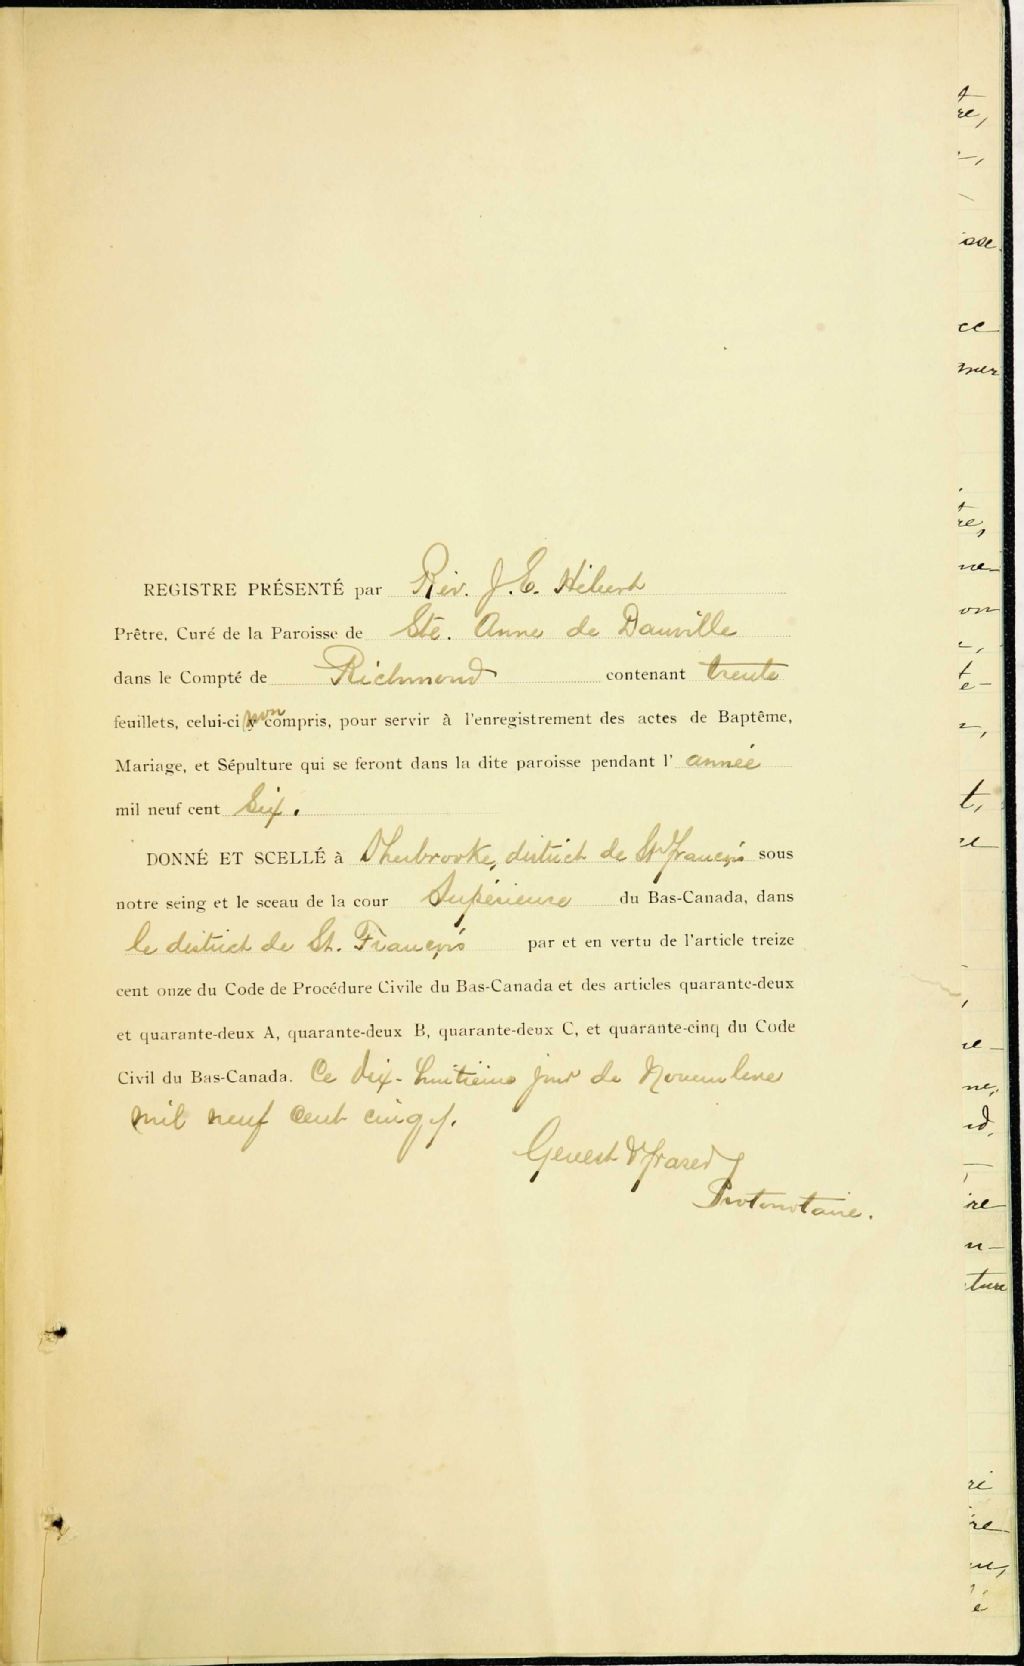 REGISTRE PRÉSENTÉ par Rév. J. E. Hébert
Prêtre, Curé de la Paroisse de Ste. Anne de Danville
dans le Compté de Richmond contenant trente
feuillets, celui-ci non compris, pour servir à l'enregistrement des actes de Baptême,
Mariage, et Sépulture qui se feront dans la dite paroisse pendant l' année
mil neuf cent Six.
DONNÉ ET SCELLÉ à Sherbrooke, district de St François sous
notre seing et le sceau de la cour Supérieure du Bas-Canada, dans
le district de St. François par et en vertu de l'article treize
cent onze du Code de Procédure Civile du Bas-Canada et des articles quarante-deux
et quarante-deux A, quarante-deux B, quarante-deux C, et quarante-cinq du Code
Civil du Bas-Canada. Ce dix-huitième jour de Novembre
mil neuf cent cinq.
Genest & Fraser
Protonotaire.